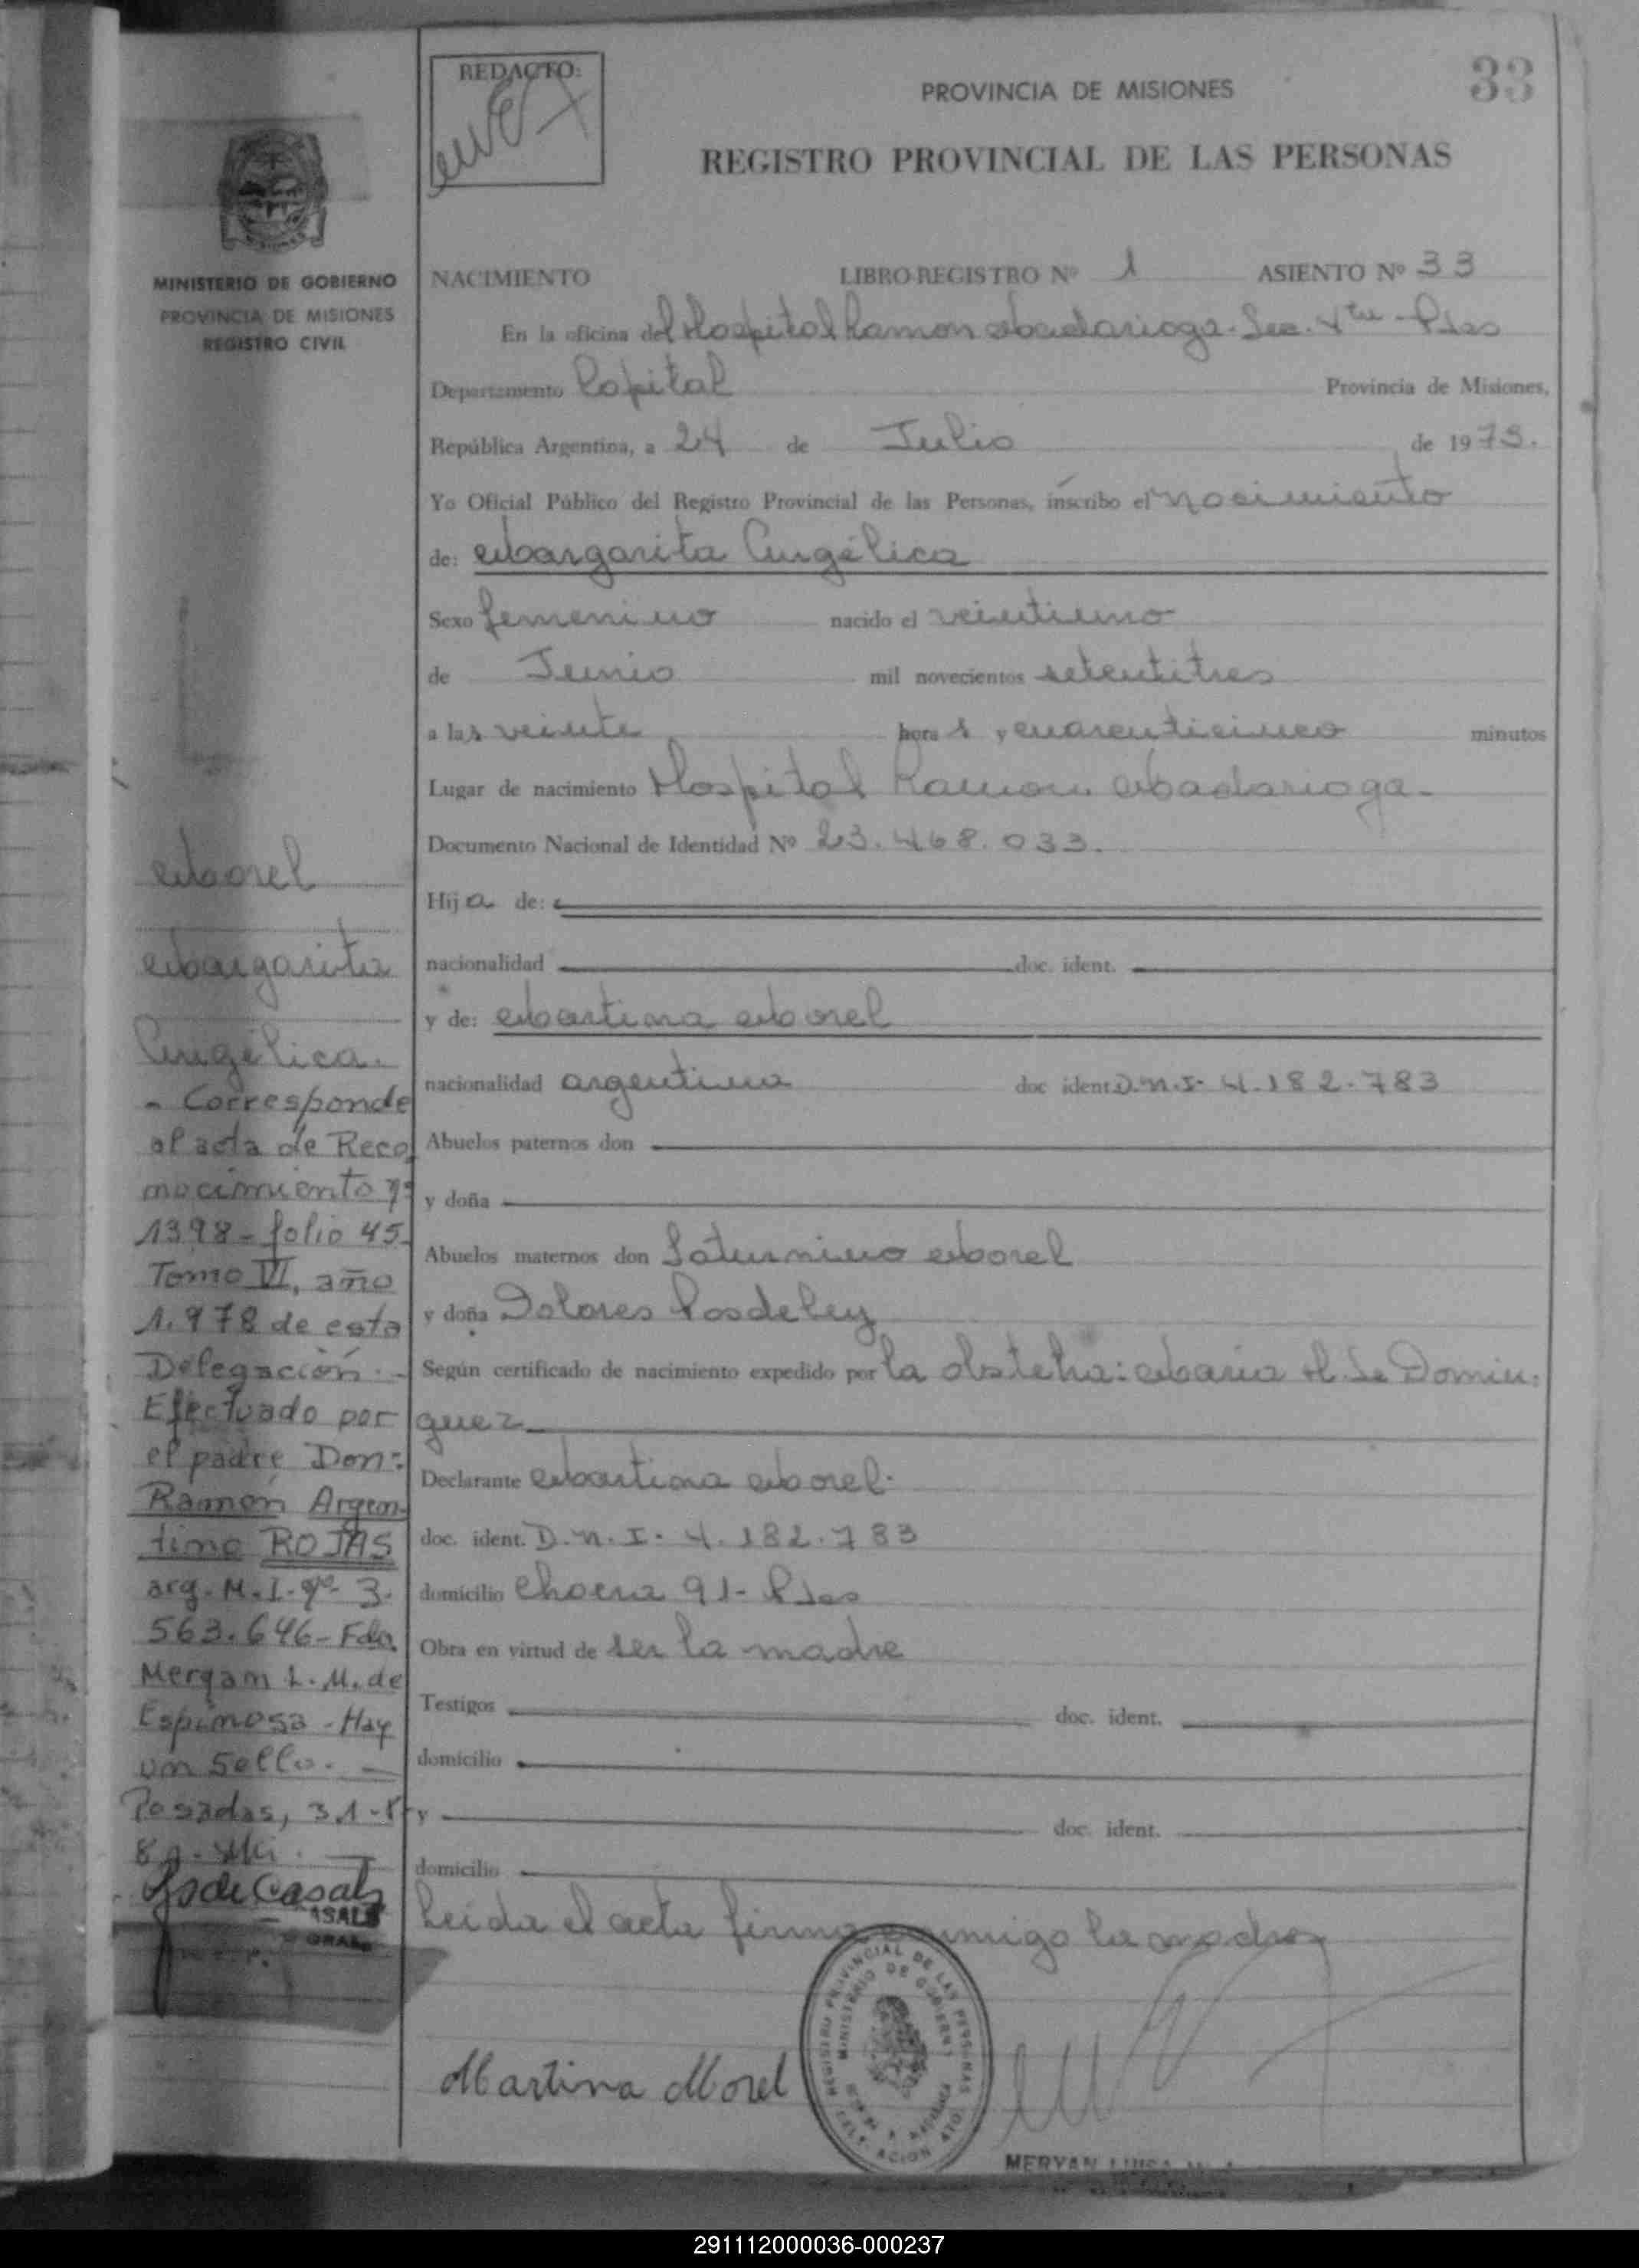 REDACTO:
PROVINCIA DE MISIONES
33
REGISTRO PROVINCIAL DE LAS PERSONAS
MINISTERIO DE GOBIERNO
PROVINCIA DE MISIONES
REGISTRO CIVIL
NACIMIENTO LIBRO-REGISTRO Nº 1 ASIENTO Nº 33
En la oficina del Hospital Ramon Madariaga. Sec. 4ta - Pdas
Departamento Capital Provincia de Misiones,
República Argentina, a 24 de Julio de 1973.
Yo Oficial Público del Registro Provincial de las Personas, inscribo el nacimiento
de: Margarita Angélica
Sexo femenino nacido el veintiuno
de Junio mil novecientos setentitres
a las veinte horas y cuarenticinco minutos
Lugar de nacimiento Hospital Ramon Madariaga-
Documento Nacional de Identidad Nº 23.468.033.
Hija de:
nacionalidad doc. ident.
y de: Martina Morel
nacionalidad argentina doc ident. D.N.I- 4.182.783
Abuelos paternos don
y doña
Abuelos maternos don Saturnino Morel
y doña Dolores
Según certificado de nacimiento expedido por la obstetra: Maria H. de Domin-
guez
Declarante Martina Morel.
doc. ident. D.N.I- 4.182.783
domicilio Chacra 91- Pdas
Obra en virtud de ser la madre
Testigos doc. ident.
domicilio
y doc. ident.
domicilio
Leida el acta firma conmigo la madre
Martina Morel
REGISTRO PROVINCIAL DE LAS PERSONAS
MINISTERIO DE GOBIERNO
MERYAN LUISA
Morel
Margarita
Angélica.
- Corresponde
al acta de Reco
nocimiento Nº
1398- folio 45-
Tomo VI, año
1.978 de esta
Delegación.-
Efectuado por
el padre Don:
Ramón Argen-
tino ROJAS
arg. M.I. Nº 3.
563.646- Fdo.
Meryam L. M. de
Espinosa - Hay
un Sello. -
Posadas, 31-8-
de Casals
291112000036-000237